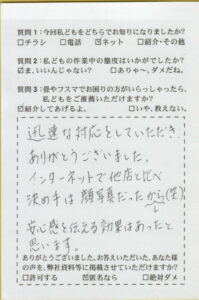 質問1:今回私どもをどちらでお知りになりましたか?
□チラシ □電話 ☑ネット □紹介・その他
質問2:私どもの作業中の態度はいかがでしたか?
☑ま、いいんじゃない? □ありゃ~、ダメだね。
質問3:畳やフスマでお困りの方がいらっしゃったら、
私どもをご推薦いただけますか?
☑紹介してあげるよ。 □いや、教えない。
迅速な対応をしていただき
ありがとうございました。
インターネットで他店と比べ
決め手は顔写真だったから(笑)
安心感を伝える効果はあったと
思います。
ありがとうございました。お答えいただいた、あなた様
の声を、弊社資料等に掲載させていただけますか?
□許可する ☑匿名なら □絶対ダメ